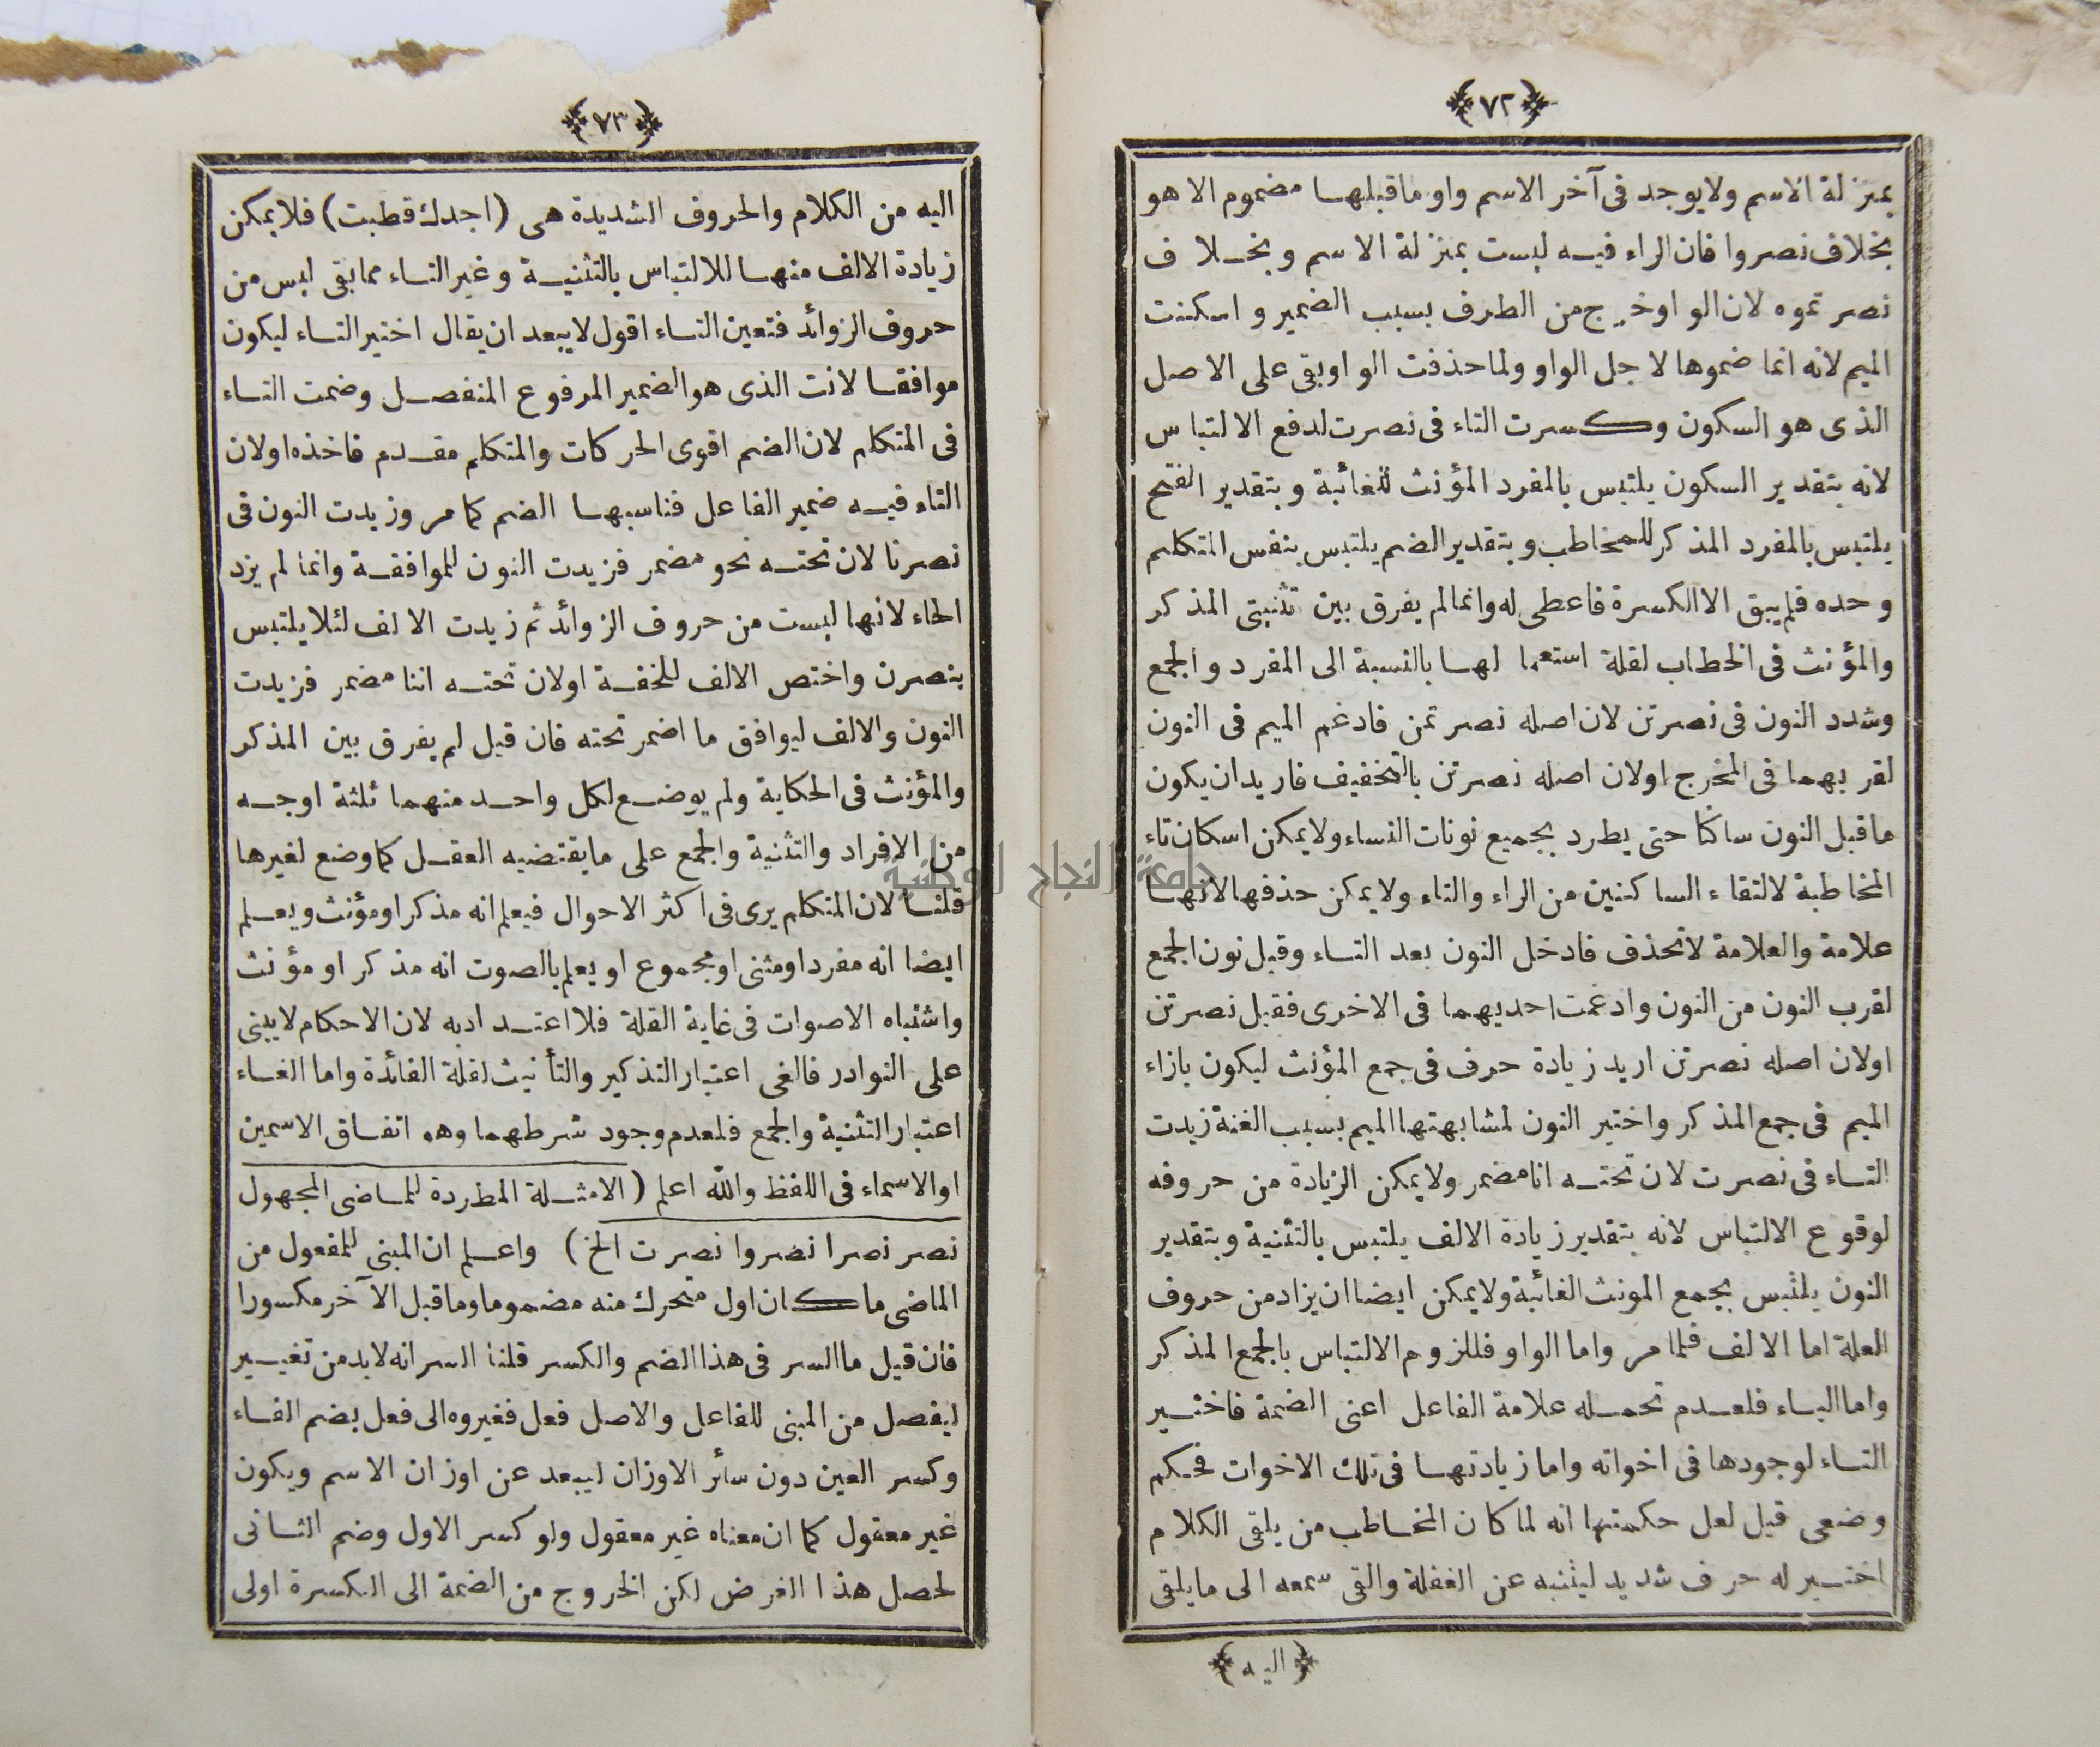 ﴿٧٢﴾
بمنزلة الاسم ولايوجد فى آخر الاسم واو ماقبلها مضموم الا هو
بخلاف نصروا فان الراء فيه ليست بمنزلة الاسم وبخلاف
نصرتموه لان الواو خرج من الطرف بسبب الضمير واسكنت
الميم لانه انما ضموها لاجل الواو ولما حذفت الواو بقى على الاصل
الذى هو السكون وكسرت التاء فى نصرت لدفع الالتباس
لانه بتقدير السكون يلتبس بالمفرد المؤنث للغائبة وبتقدير الفتح
يلتبس بالمفرد المذكر للمخاطب وبتقدير الضم يلتبس بنفس المتكلم
وحده فلم يبق الا الكسرة فاعطى له وانما لم يفرق بين تثنيتى المذكر
والمؤنث فى الخطاب لقلة استعمالها بالنسبة الى المفرد والجمع
وشدد النون فى نصرتن لان اصله نصرتمن فادغم الميم فى النون
لقربهما فى المخرج اولان اصله نصرتن بالتخفيف فاريد ان يكون
ماقبل النون ساكنا حتى يطرد بجميع نونات النساء ولايمكن اسكان تاء
المخاطبة لالتقاء الساكنين من الراء والتاء ولايمكن حذفها لانها
علامة والعلامة لاتحذف فادخل النون بعد التاء وقبل نون الجمع
لقرب النون من النون وادغمت احديهما فى الاخرى فقيل نصرتن
اولان اصله نصرتن اريد زيادة حرف فى جمع المؤنث ليكون بازاء
الميم فى جمع المذكر واختير النون لمشابهتها الميم بسبب الغنة زيدت
التاء فى نصرت لان تحته انا مضمر ولايمكن الزيادة من حروفه
لوقوع الالتباس لانه بتقدير زيادة الالف يلتبس بالتثنية وبتقدير
النون يلتبس بجمع المونث الغائبة ولايمكن ايضا ان يزاد من حروف
العلة اما الالف فلما مر واما الواو فللزوم الالتباس بالجمع المذكر
واما الياء فلعدم تحمله علامة الفاعل اعنى الضمة فاختير
التاء لوجودها فى اخواته واما زيادتها فى تلك الاخوات فحكم
وضعى قيل لعل حكمتها انه لما كان المخاطب من يلقى الكلام
اختير له حرف شديد ليتنبه عن الغفلة والقى سمعه الى مايلقى
﴿اليه﴾
﴿٧٣﴾
اليه من الكلام والحروف الشديدة هى (اجدك قطبت) فلايمكن
زيادة الالف منها للالتباس بالتثنية وغير التاء ممابقى ليس من
حروف الزوائد فتعين التاء اقول لايبعد ان يقال اختير التاء ليكون
موافقا لانت الذى هو الضمير المرفوع المنفصل وضمت التاء
فى المتكلم لان الضم اقوى الحركات والمتكلم مقدم فاخذه اولان
التاء فيه ضمير الفاعل فناسبها الضم كمامر وزيدت النون فى
نصرنا لان تحته نحو مضمر فزيدت النون للموافقة وانما لم يزد
الحاء لانها ليست من حروف الزوائد ثم زيدت الالف لئلا يلتبس
بنصرن واختص الالف للخفة اولان تحته اننا مضمر فزيدت
النون والالف ليوافق ما اضمر تحته فان قيل لم يفرق بين المذكر
والمؤنث فى الحكاية ولم يوضع لكل واحد منهما ثلثة اوجه
من الافراد والتثنية والجمع على مايقتضيه العقل كماوضع لغيرها
قلنا لان المتكلم يرى فى اكثر الاحوال فيعلم انه مذكر اومؤنث ويعلم
ايضا انه مفرد اومثنى اومجموع او يعلم بالصوت انه مذكر او مؤنث
واشتباه الاصوات فى غاية القلة فلا اعتداد به لان الاحكام لايبنى
على النوادر فالغى اعتبار التذكير والتأنيث لقلة الفائدة واما الغاء
اعتبار التثنية والجمع فلعدم وجود شرطهما وهو اتفاق الاسمين
اوالاسماء فى اللفظ والله اعلم (الامثلة المطردة للماضى المجهول
نصر نصرا نصروا نصرت الخ) واعلم ان المبنى للمفعول من
الماضى ماكان اول متحرك منه مضموما وماقبل الآخر مكسورا
فان قيل ماالسر فى هذا الضم والكسر قلنا السر انه لابد من تغيير
ليفصل من المبنى للفاعل والاصل فعل فغيروه الى فعل بضم الفاء
وكسر العين دون سائر الاوزان ليبعد عن اوزان الاسم ويكون
غير معقول كما ان معناه غير معقول ولو كسر الاول وضم الثانى
لحصل هذا الغرض لكن الخروج من الضمة الى الكسرة اولى
جامعة النجاح الوطنية